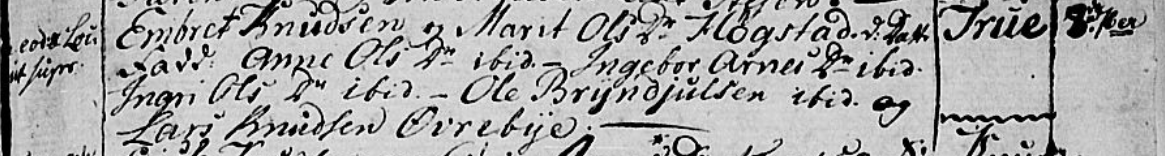 eod: Loc: Embret Knudsen og Marit Ols Dr Høgstad. d: Datt. True
ut supr. Fadd: Anne Ols Dr ibid. – Ingebor Arnes Dr ibid.
Ingri Ols Dr ibid. – Ole Bryndjulsen ibid. og
Lars Knudsen Øvrebye.